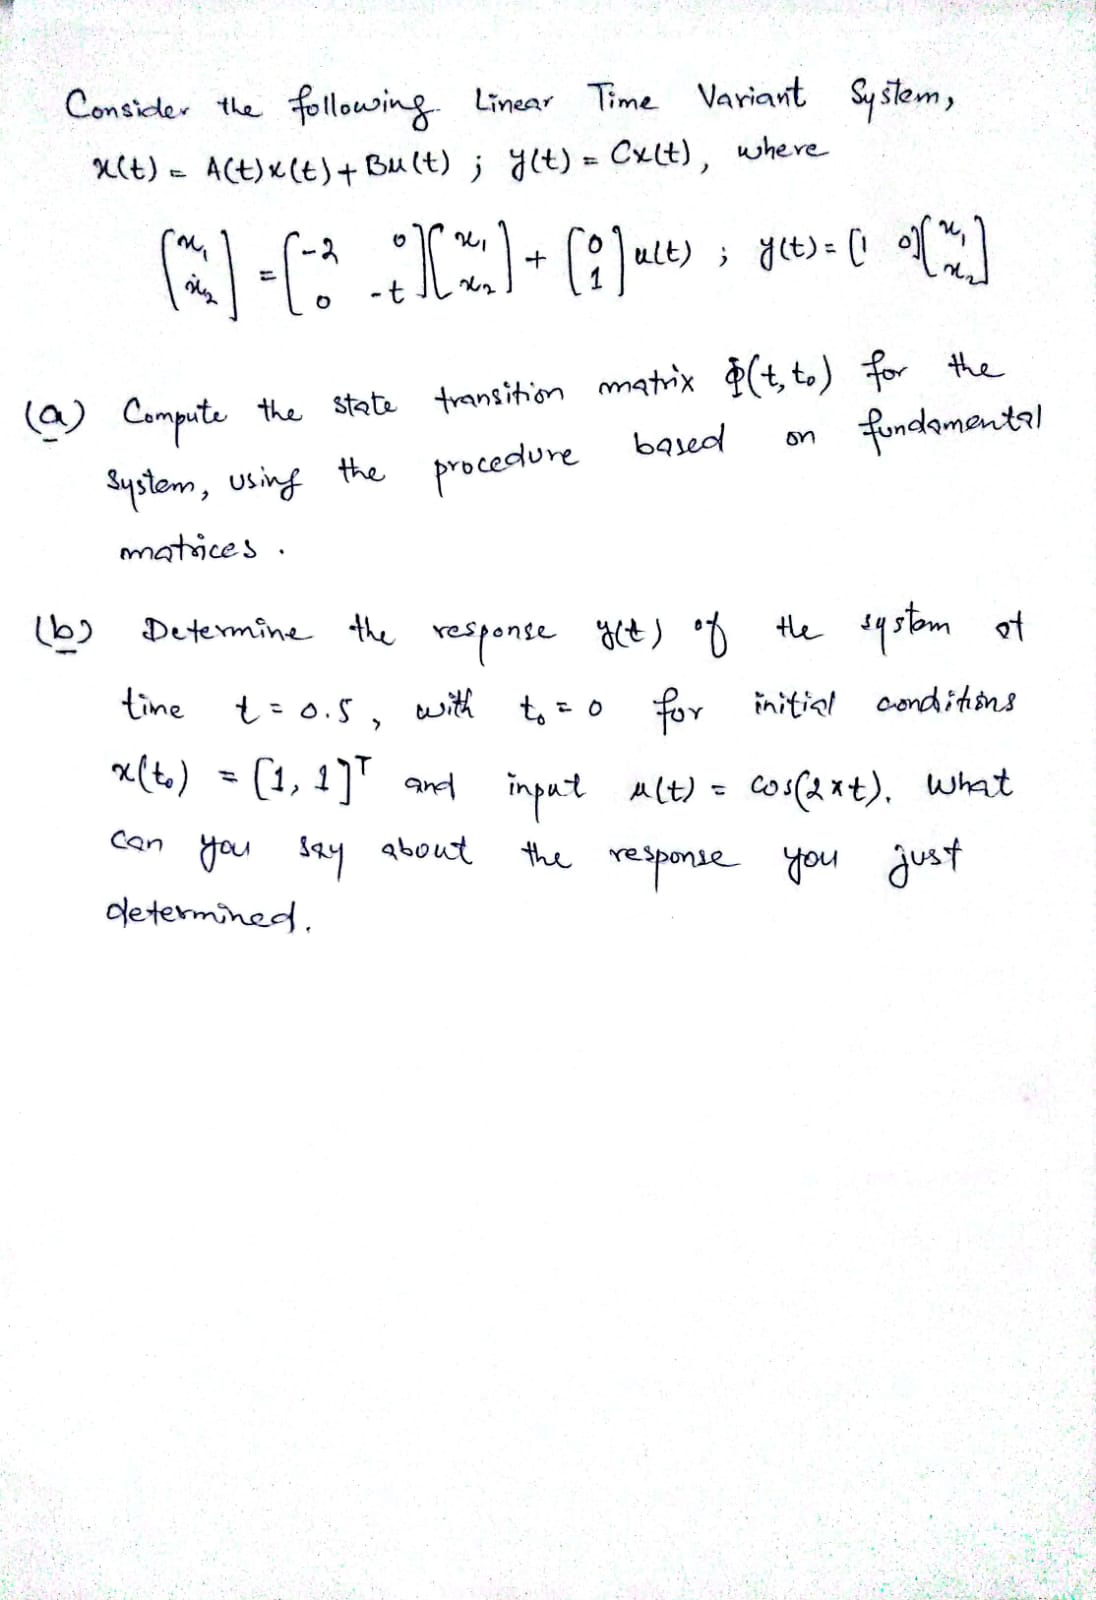 Consider the following Linear Time Variant System,
x(t) = A(t)x(t) + Bu(t) ; y(t) = Cx(t), where
[ẋ₁ ẋ₂] = [-2 0 0 -t][x₁ x₂] + [0 1]u(t) ; y(t) = [1 0][x₁ x₂]
(a) Compute the state transition matrix Φ(t, t₀) for the
system, using the procedure based on fundamental
matrices.
(b) Determine the response y(t) of the system at
time t = 0.5, with t₀ = 0 for initial conditions
x(t₀) = [1, 1]ᵀ and input u(t) = cos(2*t). What
can you say about the response you just
determined.